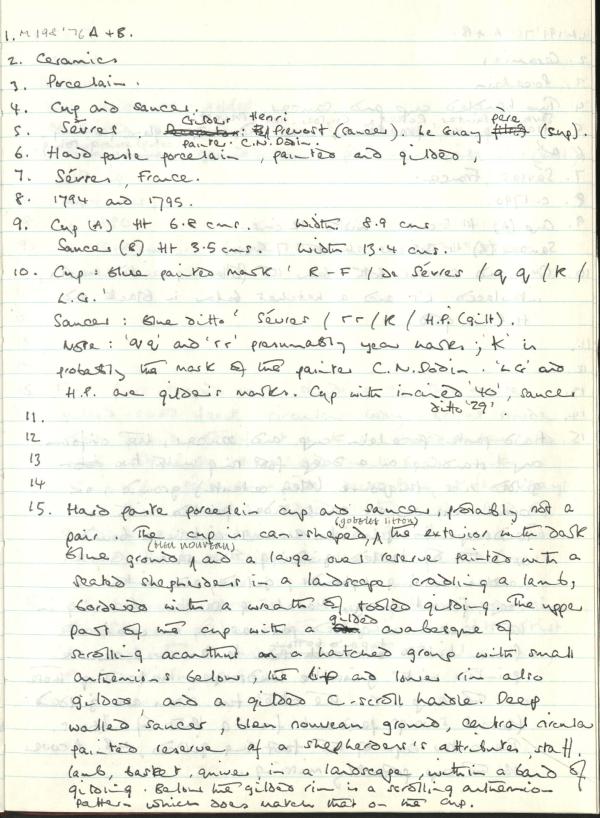 1. M 198 '76 A + B.
2. Ceramics
3. Porcelain.
4. Cup and saucer.
Gilder Henri
5. Sèvres : Prevost (saucer). Le Guay père (cup).
painter. C.N. Dodin.
6. Hard paste porcelain, painted and gilded,
7. Sèvres, France.
8. 1794 and 1795.
9. Cup (A) Ht 6.8 cms. Width 8.9 cms.
Saucer (B) Ht 3.5 cms. Width 13.4 cms.
10. Cup: Blue painted mark ' R-F / De Sévres / q q / K /
L.G.'
Saucer: Blue ditto ' Sévres / rr / K / H.P. (gilt).
Note: 'qq' and 'rr' presumably year marks; 'K' is
probably the mark of the painter C.N. Dodin. 'LG' and
H.P. are gilder's marks. Cup with incised '40', saucer
ditto '29'.
11.
12
13
14
15. Hard paste porcelain cup and saucer, probably not a
(gobelet litron)
pair. The cup is can-shaped, the exterior with dark
(bleu nouveau)
blue ground, and a large oval reserve painted with a
seated shepherdess in a landscape cradling a lamb,
bordered with a wreath of tooled gilding. The upper
gilded
part of the cup with a arabesque of
scrolling acanthus on a hatched group with small
anthemions below, the lip and lower rim also
gilded and a gilded C-scroll handle. Deep
walled saucer, bleu nouveau ground, central circular
painted reserve of a shepherdess's attributes staff,
lamb, basket, quiver in a landscape, within a band of
gilding. Below the gilded rim is a scrolling anthemion
pattern which does match that on the cup.